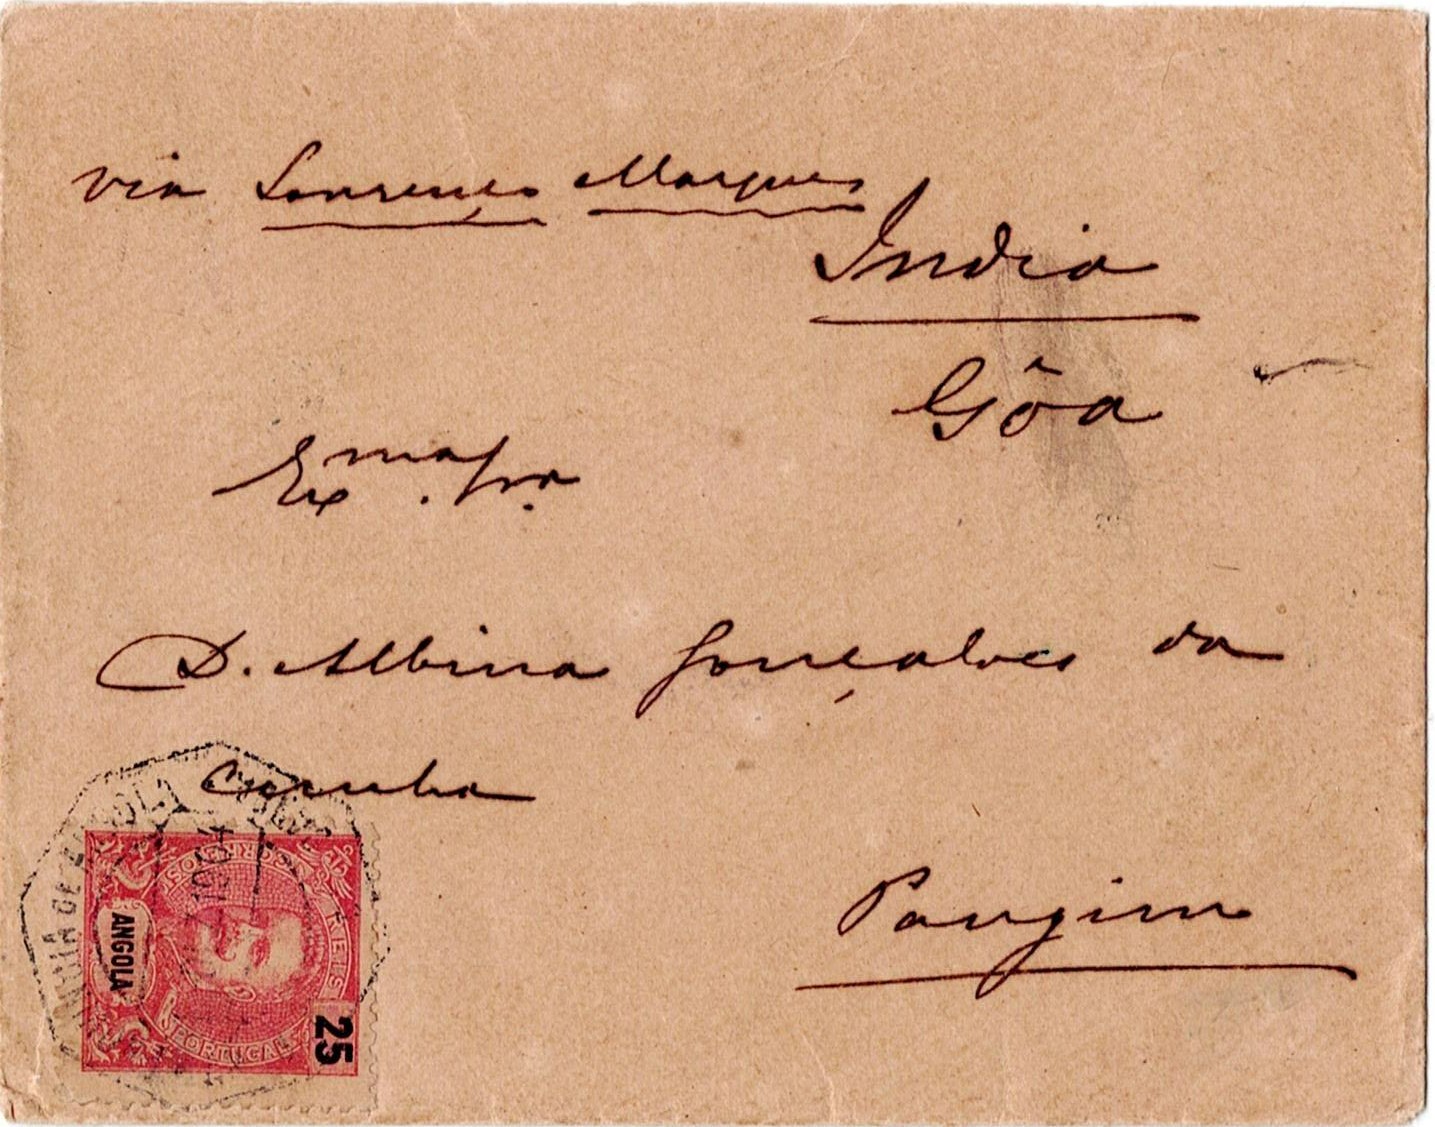 via Lourenço Marques
India
Gôa
Exma. Sra.
D. Albina Gonçalves da
Cunha
Pangim
CORREIOS
25 REIS
PORTUGAL
ANGOLA
1904